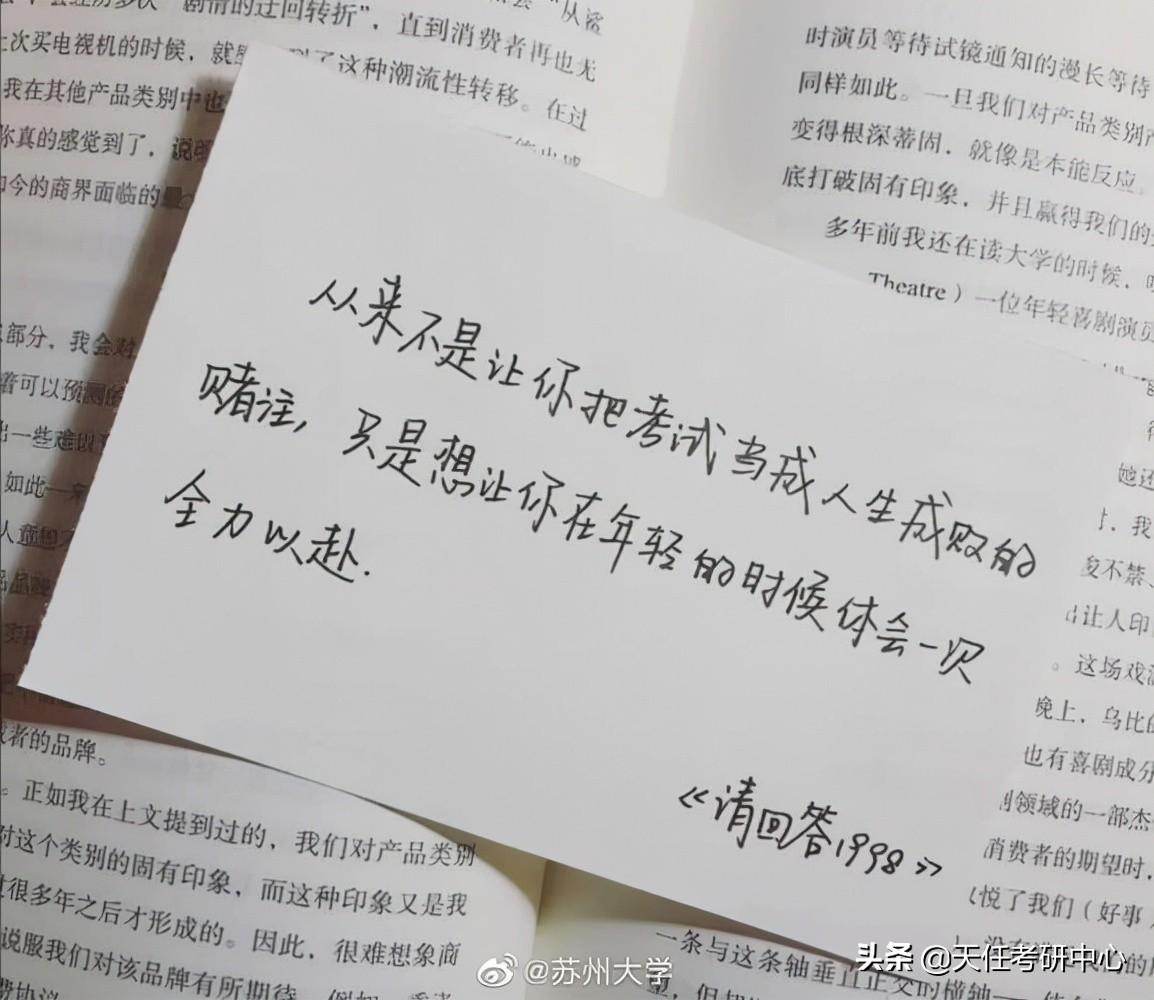 剧情的迂回转折”，直到消费者再也无
次买电视机的时候，就
了这种潮流性转移。在过
我在其他产品类别中也
你真的感觉到了，说明
今的商界面临的
时演员等待试镜通知的漫长等待
同样如此。一旦我们对产品类别
变得根深蒂固，就像是本能反应。
底打破固有印象，并且赢得我们的
多年前我还在读大学的时候，
Theatre）一位年轻喜剧演员
从来不是让你把考试当成人生成败的
赌注，只是想让你在年轻的时候体会一次
全力以赴.
《请回答1998》
部分，我会
着可以预测
出一些难以
如此一来
她还
，我
不禁、
让人印
。这场戏
晚上，乌比
也有喜剧成分
领域的一部杰
消费者的期望时，
悦了我们（好事
者的品牌。
。正如我在上文提到过的，我们对产品类别
对这个类别的固有印象，而这种印象又是我
过很多年之后才形成的。因此，很难想象商
说服我们对该品牌有所期待
一条与这条轴垂直正交的横轴
@苏州大学
头条 @天任考研中心